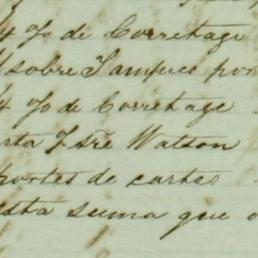 4 % de Corretage
sobre Tampico por
4 % de Corretage
rta Fsre Watson
portes de cartas
esta suma que